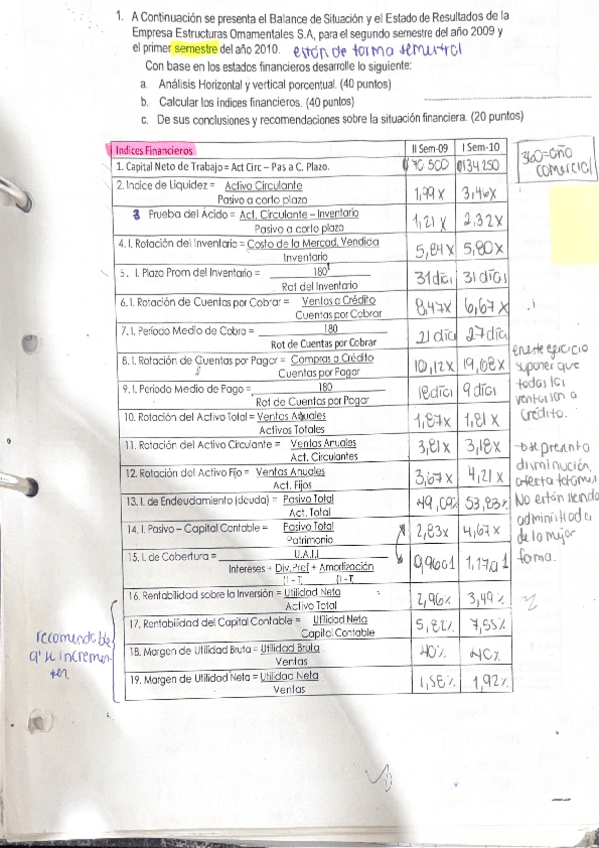 1. A Continuación se presenta el Balance de Situación y el Estado de Resultados de la
Empresa Estructuras Ornamentales S.A, para el segundo semestre del año 2009 y
el primer semestre del año 2010. están de forma semestral
Con base en los estados financieros desarrolle lo siguiente:
a. Análisis Horizontal y vertical porcentual. (40 puntos)
b. Calcular los índices financieros. (40 puntos)
c. De sus conclusiones y recomendaciones sobre la situación financiera. (20 puntos)
Indices Financieros II Sem-09 I Sem-10
360=año
comercial
1. Capital Neto de Trabajo = Act Circ – Pas a C. Plazo. 70 500 134 250
2. Indice de Liquidez = Activo Circulante
Pasivo a corto plazo 1,99 x 3,46 x
3 Prueba del Ácido = Act. Circulante – Inventario
Pasivo a corto plazo 1,21 x 2,32 x
4. I. Rotación del Inventario = Costo de la Mercad. Vendida
Inventario 5,84 x 5,80 x
5. I. Plazo Prom del Inventario = 180
Rot del Inventario 31 días 31 días
6. I. Rotación de Cuentas por Cobrar = Ventas a Crédito
Cuentas por Cobrar 8,47x 6,67 x
7. I. Período Medio de Cobro = 180
Rot de Cuentas por Cobrar 21 día 27 día
8. I. Rotación de Cuentas por Pagar = Compras a Crédito
Cuentas por Pagar 10,12x 19,68x
9. I. Período Medio de Pago = 180
Rot de Cuentas por Pagar 18 días 9 días
en este ejercicio
suponer que
todas las
ventas son a
crédito.
10. Rotación del Activo Total = Ventas Anuales
Activos Totales 1,87x 1,81 x
11. Rotación del Activo Circulante = Ventas Anuales
Act. Circulantes 3,81x 3,18x
12. Rotación del Activo Fijo = Ventas Anuales
Act. Fijos 3,67x 4,21 x
13. I. de Endeudamiento (deuda) = Pasivo Total
Act. Total 49,09% 53,83%
14. I. Pasivo – Capital Contable = Pasivo Total
Patrimonio 2,83x 4,67x
15. I. de Cobertura = U.A.I.I
Intereses + Div.Pref + Amortización
disminución,
No están siendo
de la mejor
forma.
16. Rentabilidad sobre la Inversión = Utilidad Neta
Activo Total 2,96% 3,49%
17. Rentabilidad del Capital Contable = Utilidad Neta
Capital Contable 5,82% 7,55%
18. Margen de Utilidad Bruta = Utilidad Bruta
Ventas 40% 40%
19. Margen de Utilidad Neta = Utilidad Neta
Ventas 1,58% 1,92%
recomendable
q' se incremen-
ten